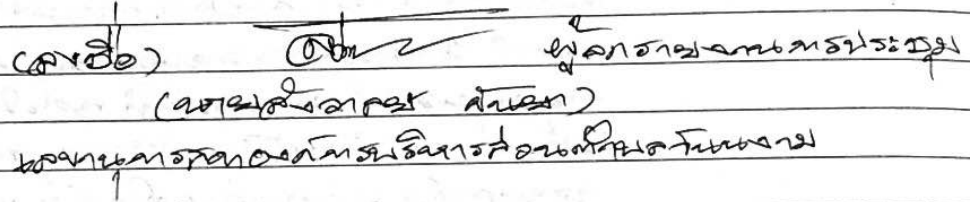 (ลงชื่อ) ผู้จดรายงานการประชุม
(นาย
เลขานุการสภาองค์การบริหารส่วนตำบลโนนงาม